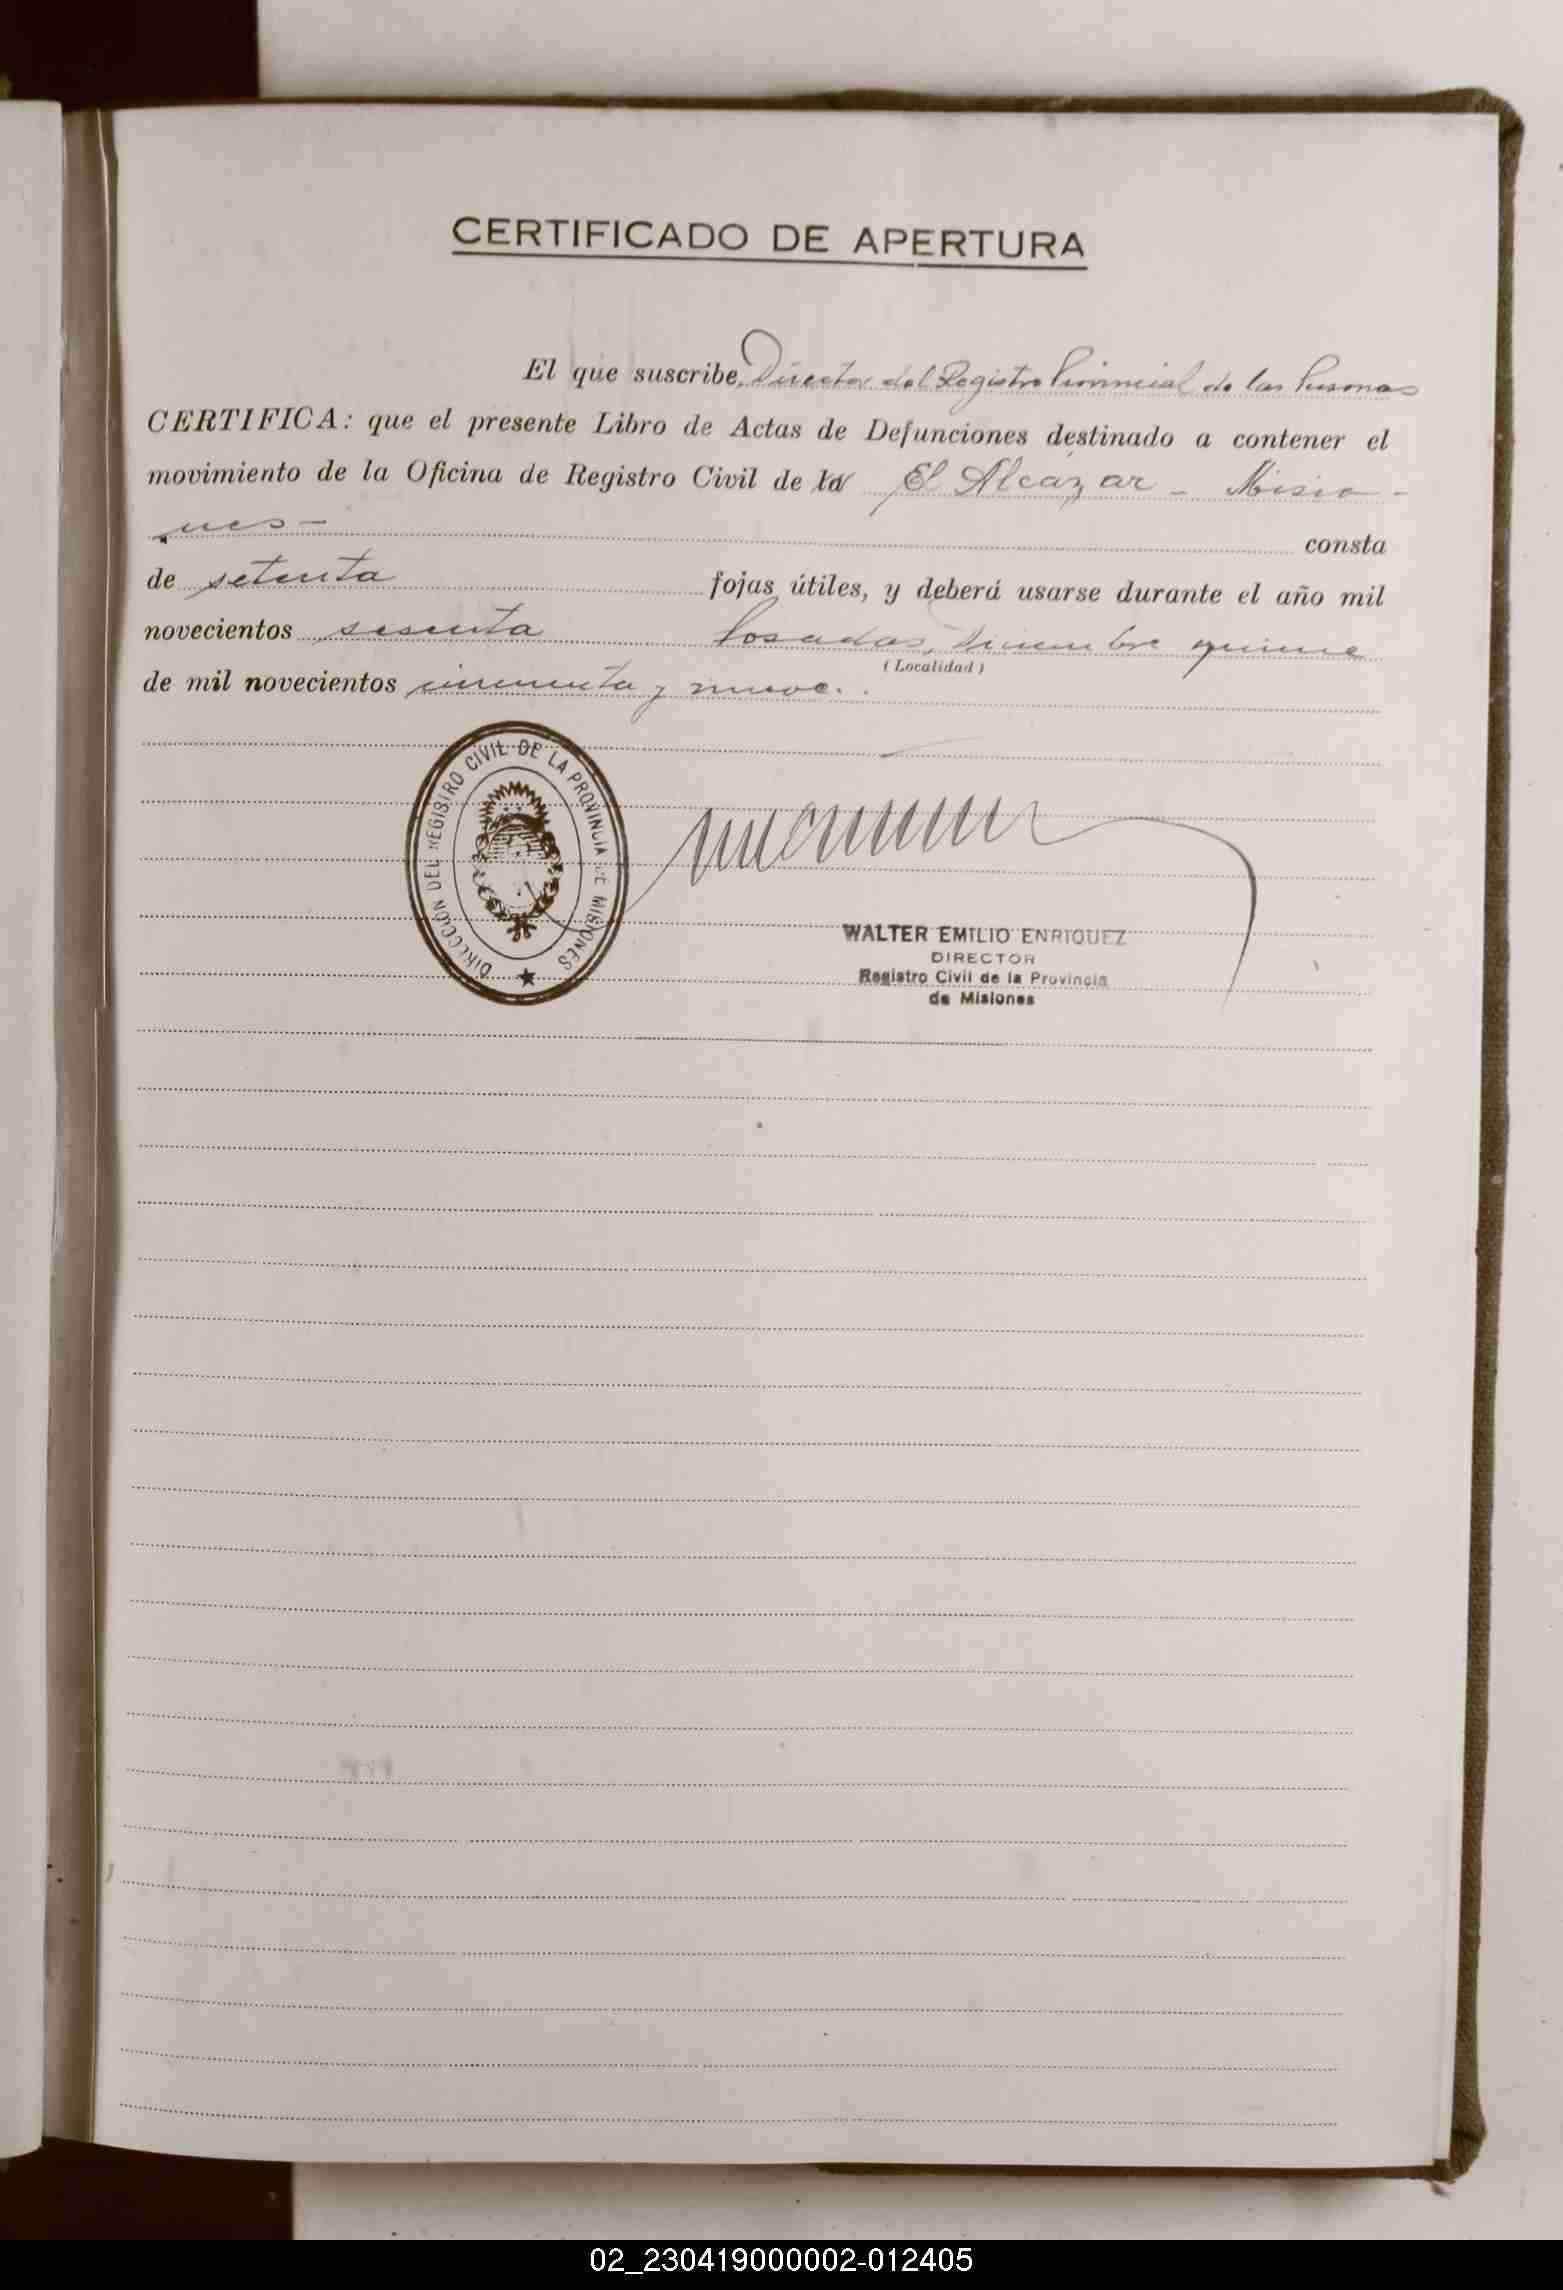 CERTIFICADO DE APERTURA
El que suscribe, Director del Registro Provincial de las Personas
CERTIFICA: que el presente Libro de Actas de Defunciones destinado a contener el
movimiento de la Oficina de Registro Civil de la El Alcázar - Misio-
nes - consta
de setenta fojas útiles, y deberá usarse durante el año mil
novecientos sesenta Posadas, Diciembre quince
(Localidad)
de mil novecientos cincuenta y nueve.
DIRECCIÓN DEL REGISTRO CIVIL DE LA PROVINCIA DE MISIONES
WALTER EMILIO ENRIQUEZ
DIRECTOR
Registro Civil de la Provincia
de Misiones
02_230419000002-012405